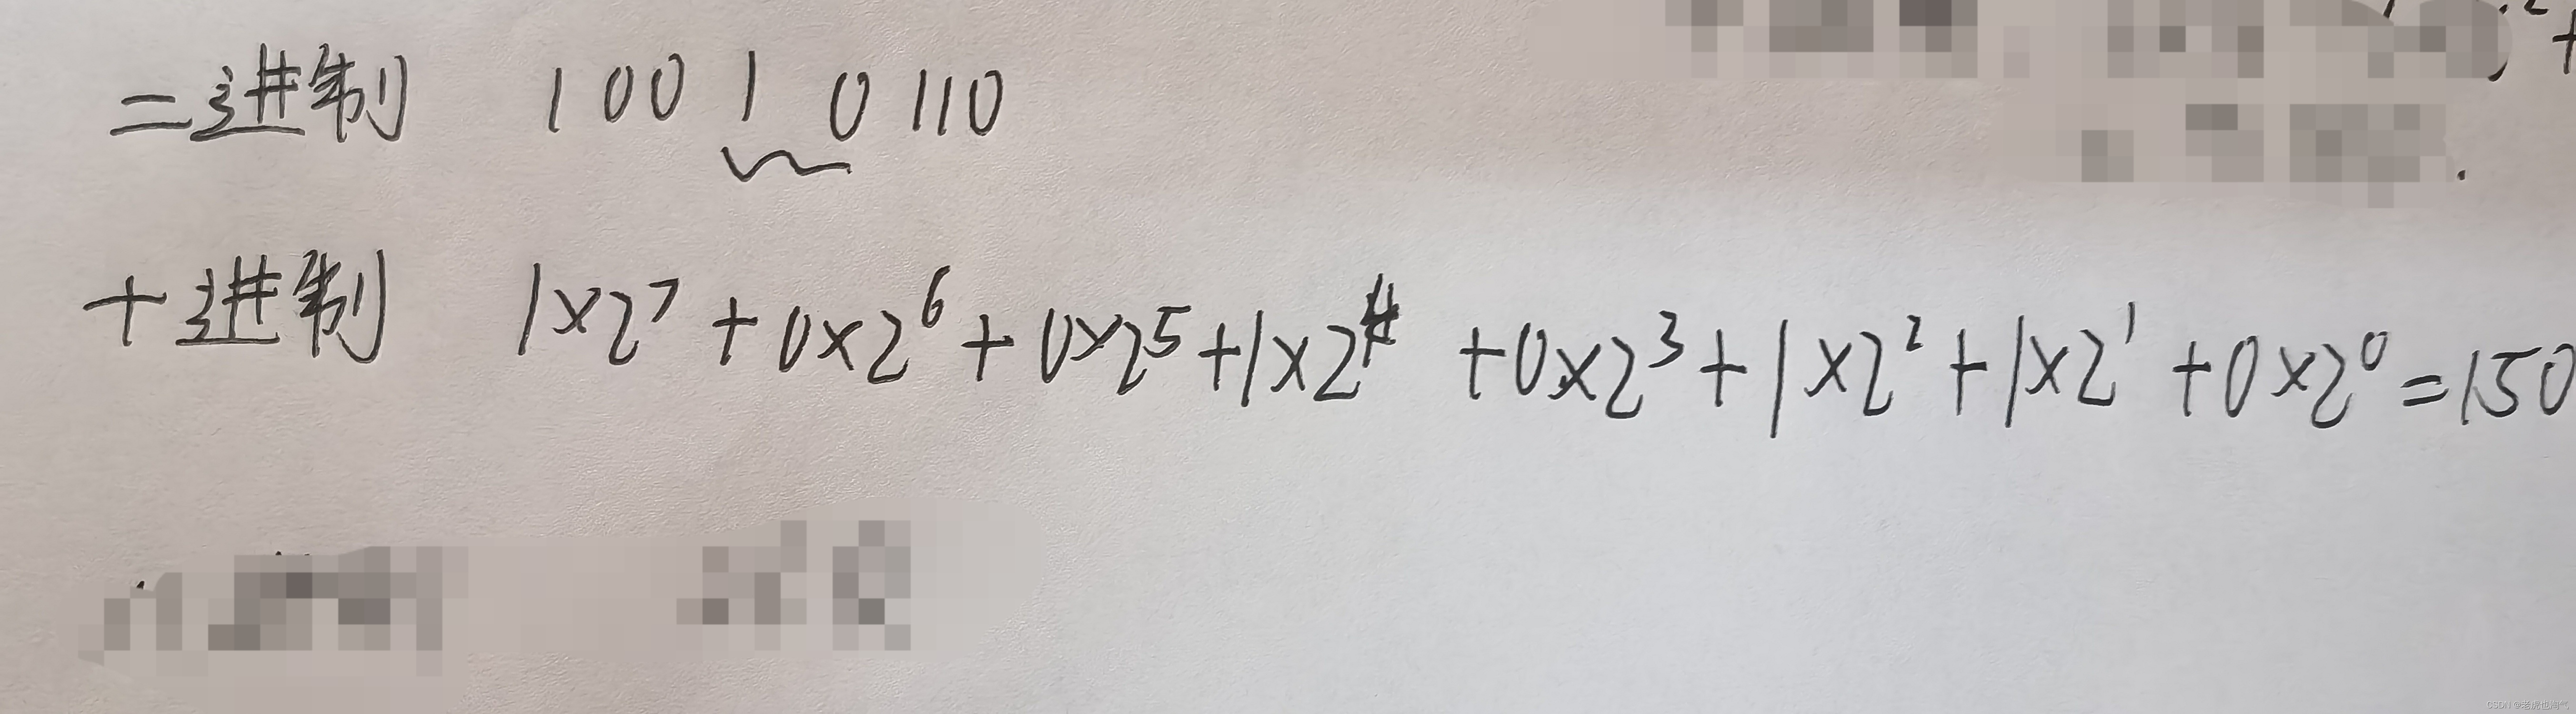 二进制 1001 0110
十进制 1×2⁷+0×2⁶+0×2⁵+1×2⁴+0×2³+1×2²+1×2¹+0×2⁰=150
CSDN @老虎也淘气